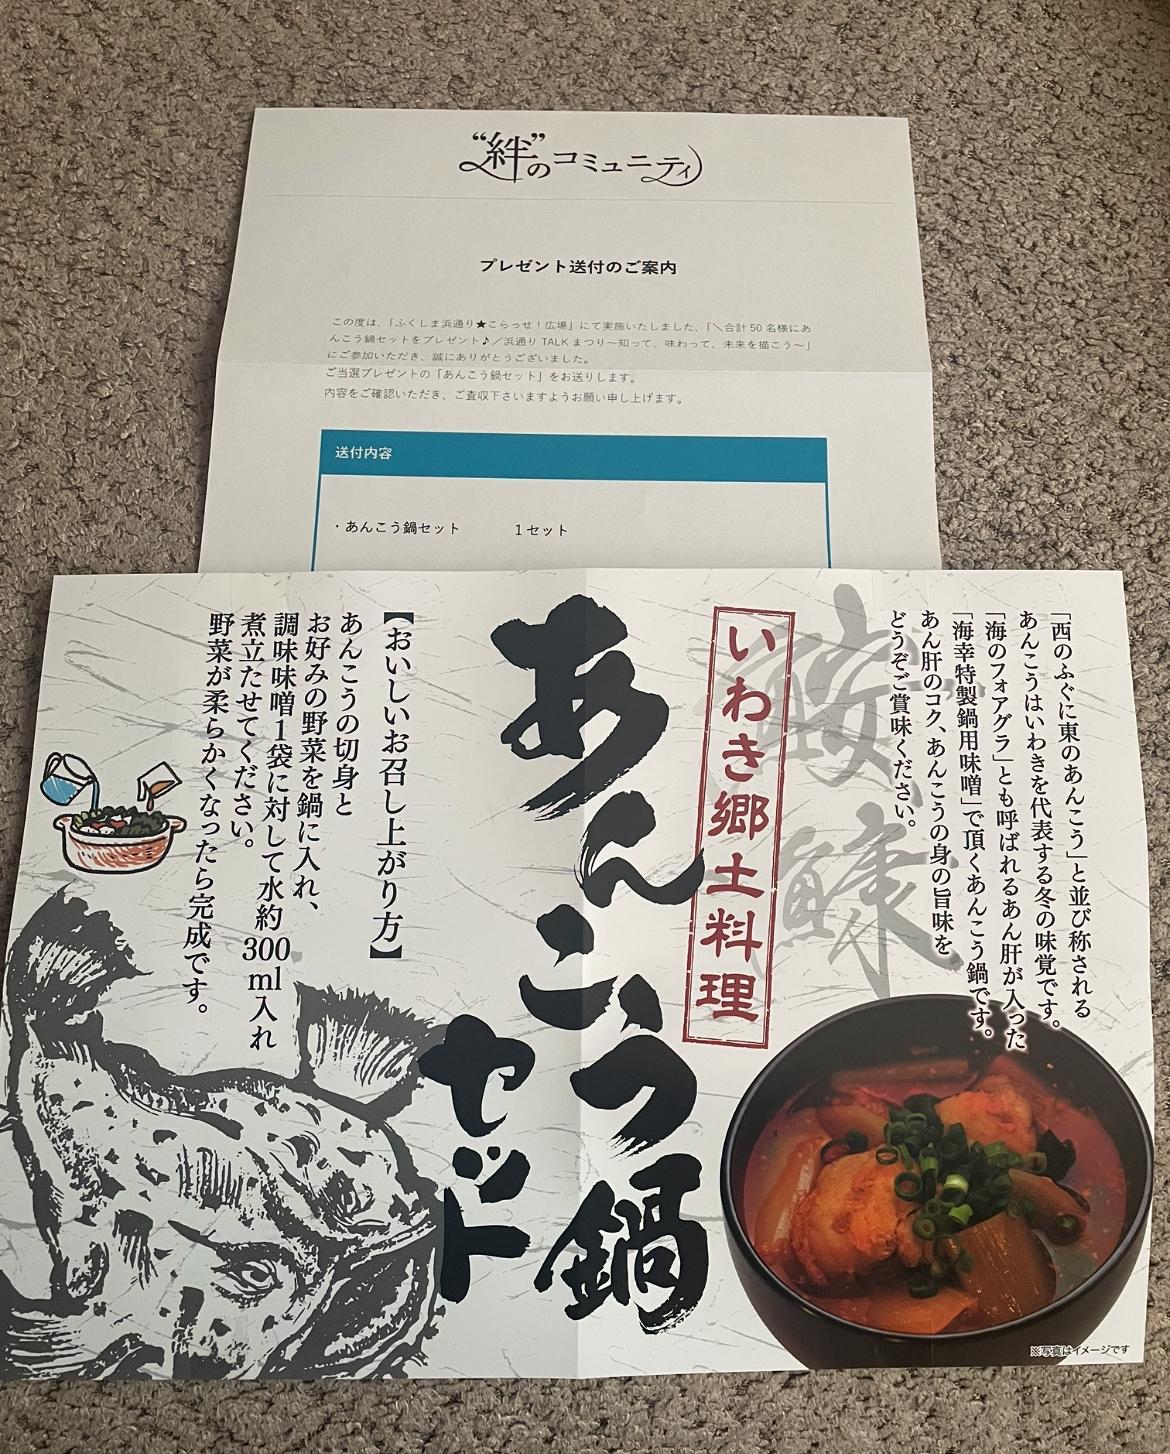 “絆”のコミュニティ
プレゼント送付のご案内
この度は、「ふくしま浜通り★こらっせ！広場」にて実施いたしました、「＼合計50名様にあ
んこう鍋セットをプレゼント♪／浜通りTALKまつり～知って、味わって、未来を描こう～」
にご参加いただき、誠にありがとうございました。
ご当選プレゼントの「あんこう鍋セット」をお送りします。
内容をご確認いただき、ご査収下さいますようお願い申し上げます。
送付内容
・あんこう鍋セット 1セット
「西のふぐに東のあんこう」と並び称される
あんこうはいわきを代表する冬の味覚です。
「海のフォアグラ」とも呼ばれるあん肝が入った
「海幸特製鍋用味噌」で頂くあんこう鍋です。
あん肝のコク、あんこうの身の旨味を
どうぞご賞味ください。
鮟鱇
いわき郷土料理
あんこう鍋
セット
【おいしいお召し上がり方】
あんこうの切身と
お好みの野菜を鍋に入れ、
調味味噌1袋に対して水約300ml入れ
煮立たせてください。
野菜が柔らかくなったら完成です。
※写真はイメージです